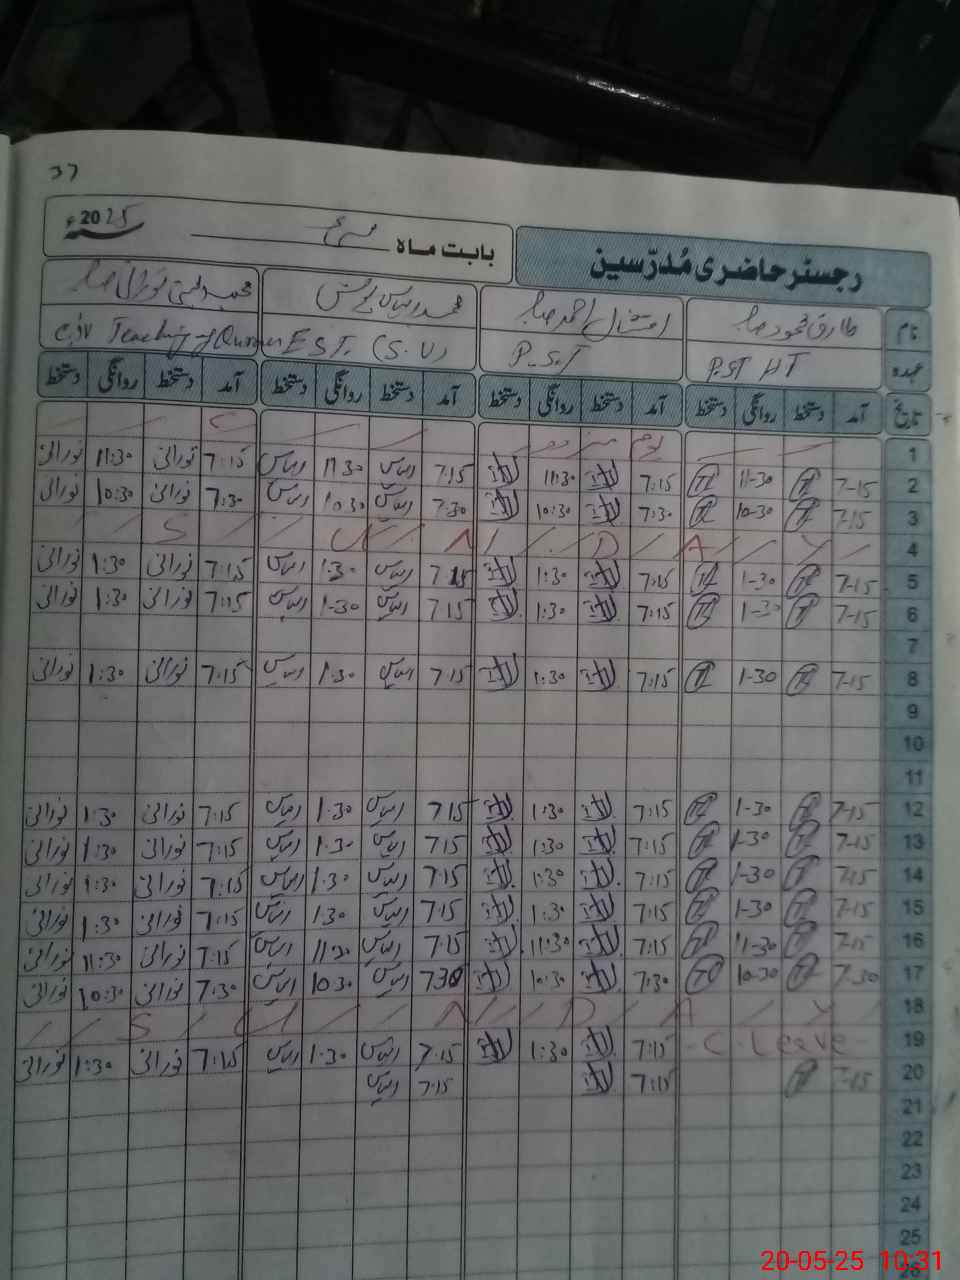 37
رجسٹر حاضری مُدرّسین
بابت ماہ مئی 2025ء
نام طارق محمود صاحب امتثال احمد صاحب محمد الیاس نورانی صاحب
عہدہ P.ST HT P.S.T E S T. (S.V) Teaching of Quran
تاریخ آمد دستخط روانگی دستخط آمد دستخط روانگی دستخط آمد دستخط روانگی دستخط آمد دستخط روانگی دستخط
1 یوم مزدور
2 7-15 11-30 7:15 11:30 7.15 الیاس 11 30 الیاس 7:15 نورانی 11:30 نورانی
3 7-15 10-30 7:30 10:30 7.30 الیاس 10 30 الیاس 7:30 نورانی 10:30 نورانی
4 S U N D A Y
5 7-15 1-30 7:15 1:30 7 15 الیاس 1.30 الیاس 7:15 نورانی 1:30 نورانی
6 7-15 1-30 7:15 1:30 7.15 الیاس 1-30 الیاس 7:15 نورانی 1:30 نورانی
7
8 7-15 1-30 7:15 1:30 7.15 الیاس 1.30 الیاس 7:15 نورانی 1:30 نورانی
9
10
11
12 7-15 1-30 7:15 1:30 7 15 الیاس 1.30 الیاس 7:15 نورانی 1:30 نورانی
13 7-15 1-30 7:15 1:30 7.15 الیاس 1.30 الیاس 7:15 نورانی 1:30 نورانی
14 7-15 1-30 7:15 1:30 7.15 الیاس 1.30 الیاس 7:15 نورانی 1:30 نورانی
15 7-15 1-30 7:15 1:30 7.15 الیاس 1.30 الیاس 7:15 نورانی 1:30 نورانی
16 7-15 11-30 7:15 11:30 7.15 الیاس 11.30 الیاس 7:15 نورانی 11:30 نورانی
17 7-30 10-30 7:30 10:30 730 الیاس 10.30 الیاس 7:30 نورانی 10:30 نورانی
18 S U N D A Y
19 C. Leave 7:15 1:30 7.15 الیاس 1.30 الیاس 7:15 نورانی 1:30 نورانی
20 7-15 7:15 7.15 الیاس
21
22
23
24
25
26
20-05-25 10:31